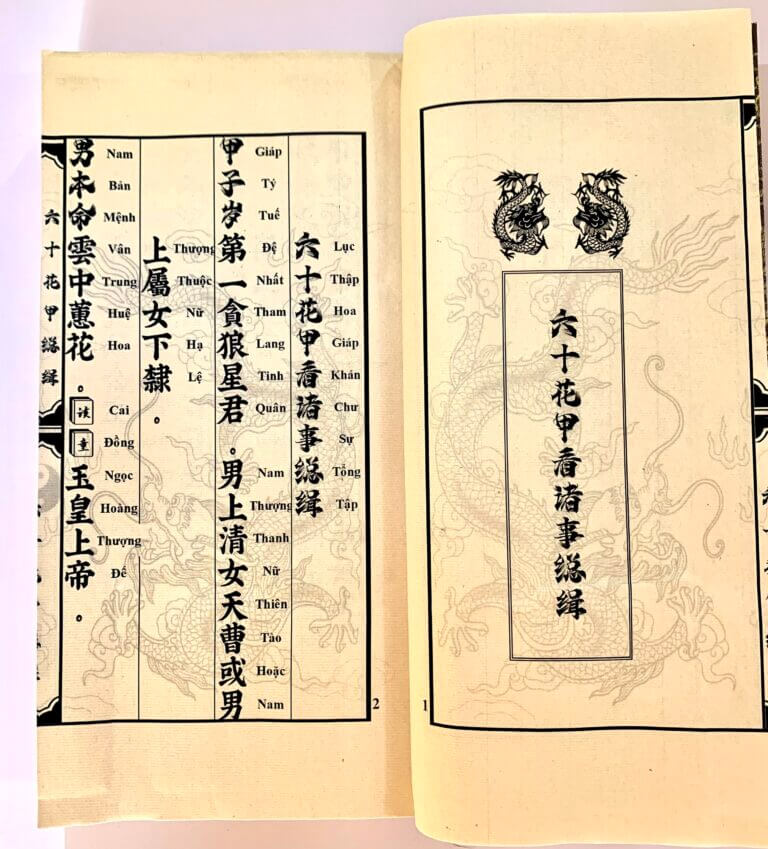 六十花甲看诸事縂缉
1
六十花甲看诸事縂缉
Lục Thập Hoa Giáp Khán Chư Sự Tổng Tập
甲子岁第一貪狼星君。男上清女天曹或男
Giáp Tý Tuế Đệ Nhất Tham Lang Tinh Quân Nam Thượng Thanh Nữ Thiên Tào Hoặc Nam
上屬女下隸。
Thượng Thuộc Nữ Hạ Lệ
男本命雲中蕙花。该童玉皇上帝。
Nam Bản Mệnh Vân Trung Huệ Hoa Cai Đồng Ngọc Hoàng Thượng Đế
六十花甲縂缉
2